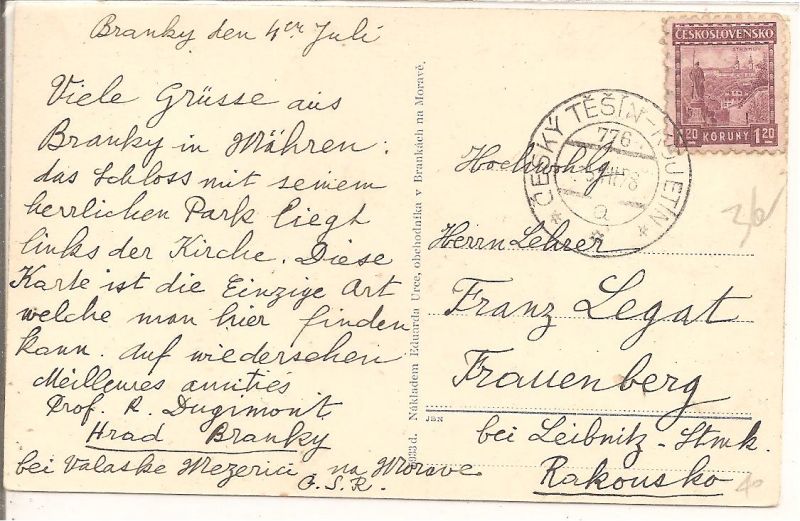 Branky den 4er Juli
Viele Grüsse aus
Branky in Mähren:
das Schloss mit seinem
herrlichen Park liegt
links der Kirche. Diese
Karte ist die Einzige Art
welche man hier finden
kann. Auf wiedersehen
Meilleures amitiés
Prof. R. Dugimont
Hrad Branky
bei Valaske Mezerici na Morave
C.S.R.
5933 d. Nákladem Eduarda Urce, obchodníka v Brankách na Moravě.
JBN
ČESKOSLOVENSKO
STRAHOV
1.20 KORUNY 1.20
ČESKÝ TĚŠÍN-KOJETÍN
776
a
Hochwohlg
Herrn Lehrer
Franz Legat
Frauenberg
bei Leibnitz - Stmk.
Rakousko
36
40